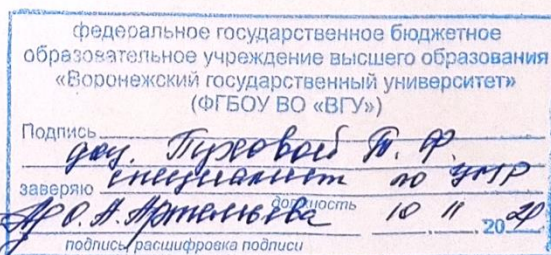 федеральное государственное бюджетное
образовательное учреждение высшего образования
«Воронежский государственный университет»
(ФГБОУ ВО «ВГУ»)
Подпись
доц. Пуховой Т. Ф.
заверяю специалист по УМР
должность
О. А. Артемьева 10 11 2020
подпись, расшифровка подписи